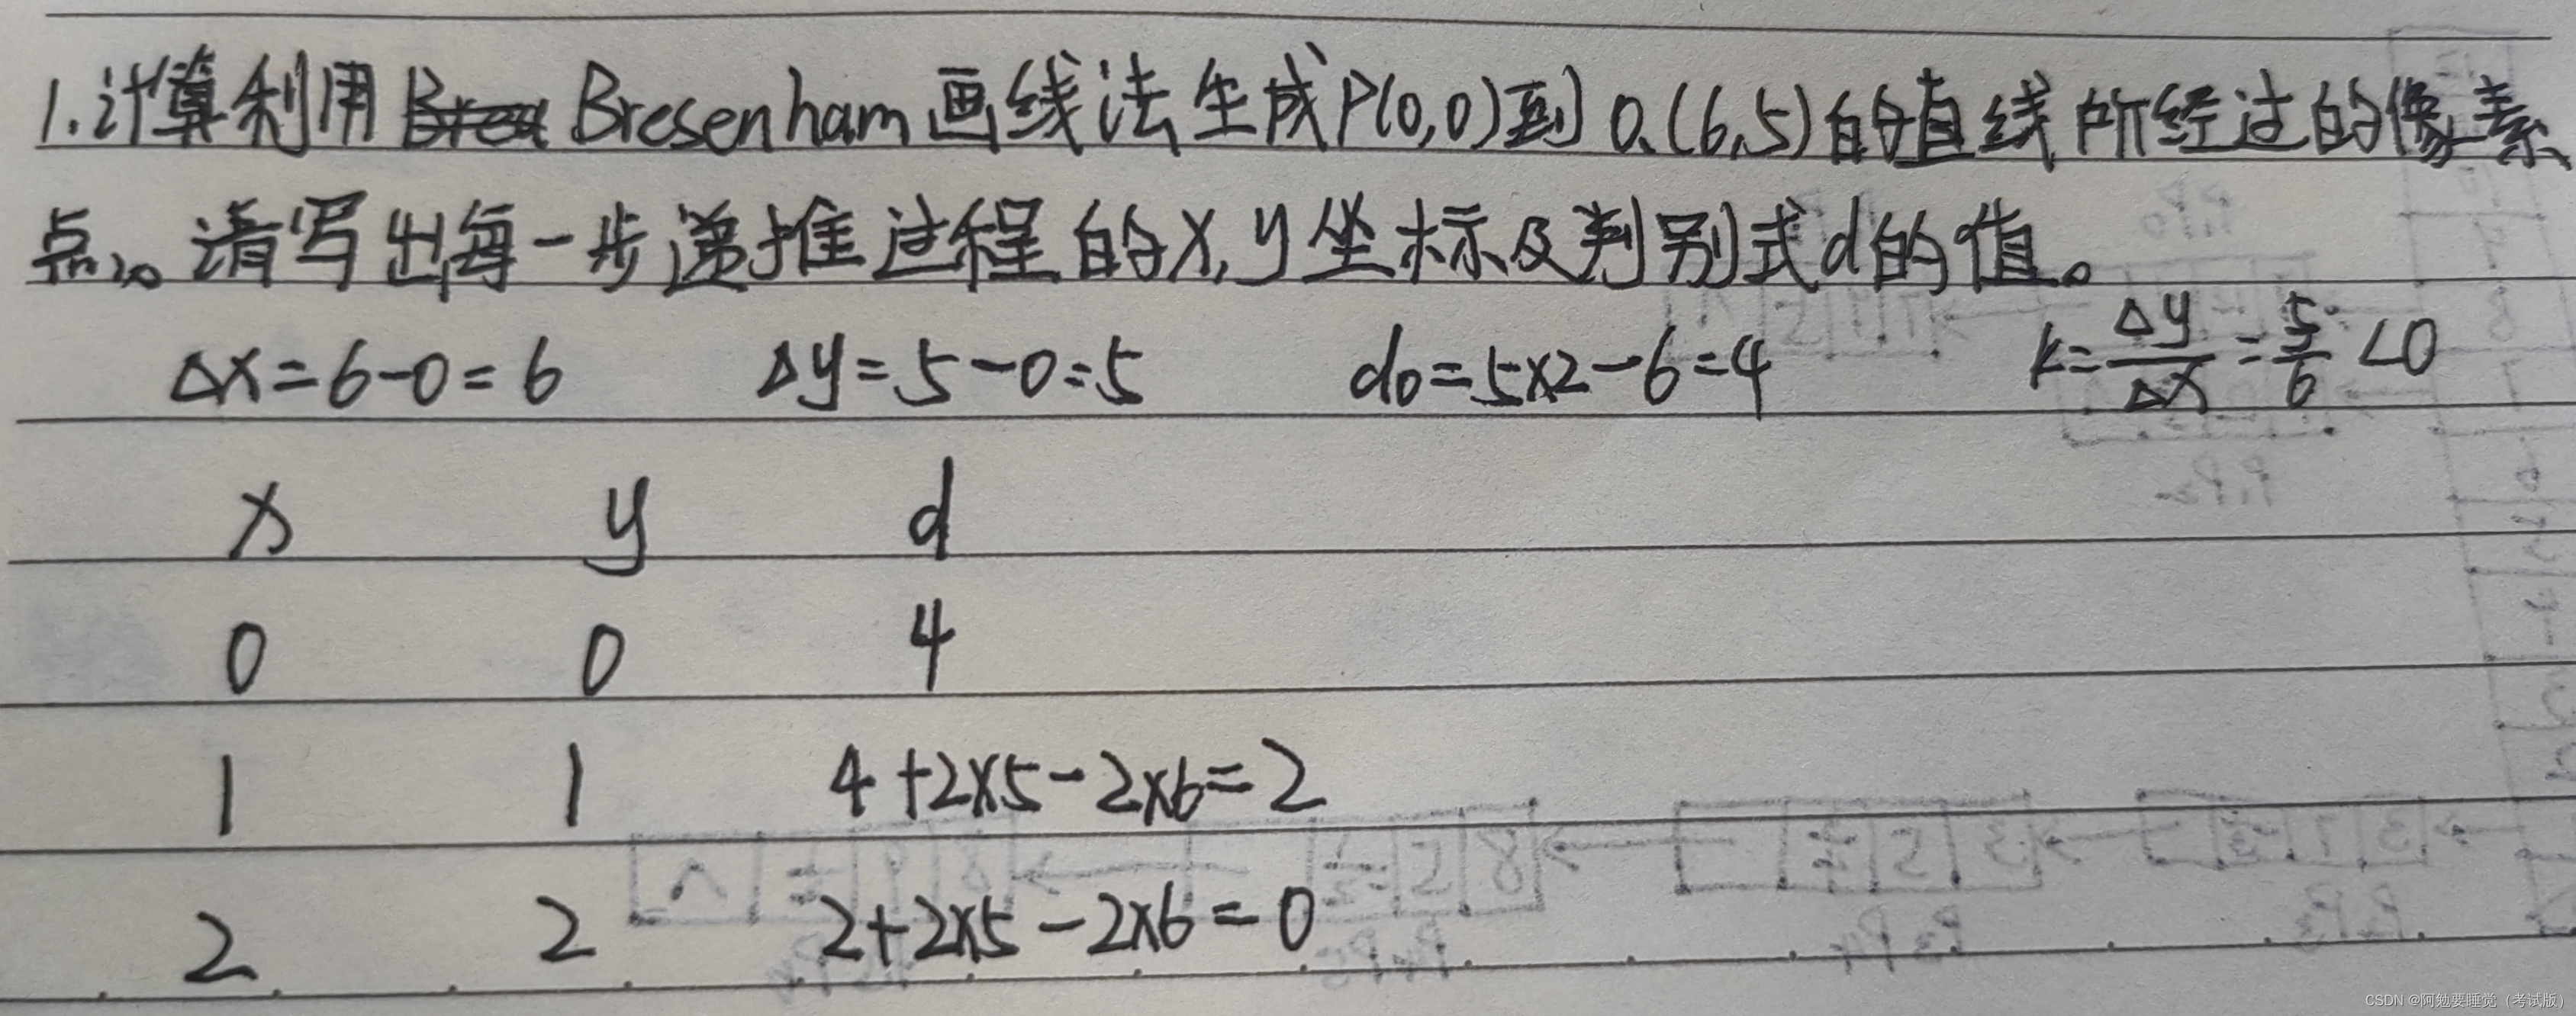 1.计算利用 Bresenham画线法生成P(0,0)到Q(6,5)的直线所经过的像素
点。请写出每一步递推过程的x,y坐标及判别式d的值。
Δx=6-0=6 Δy=5-0=5 d0=5×2-6=4 k=Δy/Δx=5/6<0
x y d
0 0 4
1 1 4+2×5-2×6=2
2 2 2+2×5-2×6=0
CSDN @阿勉要睡觉（考试版）